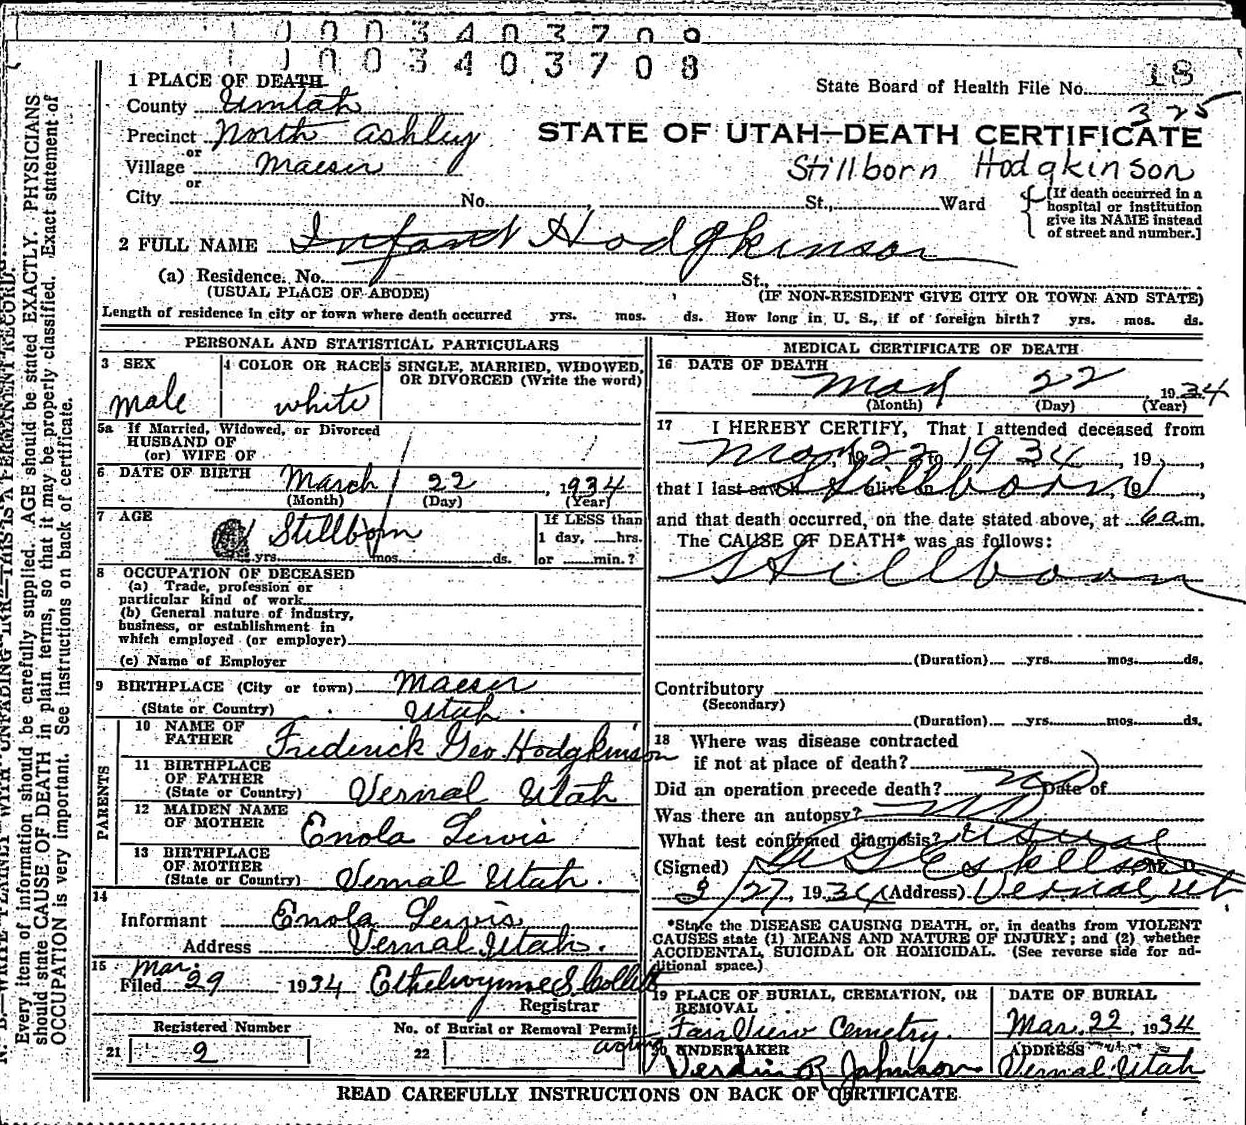 1 0 0 3 4 0 3 7 0 8
1 0 0 3 4 0 3 7 0 8
1 PLACE OF DEATH
State Board of Health File No. 18
325
County Uintah
Precinct North Ashley
STATE OF UTAH—DEATH CERTIFICATE
or
Village Maeser
Stillborn Hodgkinson
or
City No. , St., Ward
[If death occurred in a hospital or institution give its NAME instead of street and number.]
2 FULL NAME Infant Hodgkinson
(a) Residence. No. St.,
(USUAL PLACE OF ABODE) (IF NON-RESIDENT GIVE CITY OR TOWN AND STATE)
Length of residence in city or town where death occurred yrs. mos. ds. How long in U. S., if of foreign birth? yrs. mos. ds.
PERSONAL AND STATISTICAL PARTICULARS
3 SEX
male
4 COLOR OR RACE
white
5 SINGLE, MARRIED, WIDOWED,
OR DIVORCED (Write the word)
5a If Married, Widowed, or Divorced
HUSBAND OF
(or) WIFE OF
6 DATE OF BIRTH March 22, 1934
(Month) (Day) (Year)
7 AGE Stillborn
yrs. mos. ds.
If LESS than
1 day, hrs.
or min.?
8 OCCUPATION OF DECEASED
(a) Trade, profession or
particular kind of work
(b) General nature of industry,
business, or establishment in
which employed (or employer)
(c) Name of Employer
9 BIRTHPLACE (City or town) Maeser
(State or Country) Utah.
PARENTS
10 NAME OF
FATHER Frederick Geo. Hodgkinson
11 BIRTHPLACE
OF FATHER
(State or Country) Vernal Utah
12 MAIDEN NAME
OF MOTHER Enola Lewis
13 BIRTHPLACE
OF MOTHER
(State or Country) Vernal Utah.
14
Informant Enola Lewis
Address Vernal Utah.
15 Filed Mar. 29 1934 Ethelwynne S. Collett
Registrar
Registered Number
21 9
No. of Burial or Removal Permit
22
MEDICAL CERTIFICATE OF DEATH
16 DATE OF DEATH
Mar 22 1934
(Month) (Day) (Year)
17 I HEREBY CERTIFY, That I attended deceased from
Mar 22 to 1934, 19
that I last saw h alive on Stillborn, 19
and that death occurred, on the date stated above, at 6 a.m.
The CAUSE OF DEATH* was as follows:
Stillborn
(Duration) yrs. mos. ds.
Contributory
(Secondary)
(Duration) yrs. mos. ds.
18 Where was disease contracted
if not at place of death?
Did an operation precede death? no Date of
Was there an autopsy? no
What test confirmed diagnosis? usual
(Signed) Eskelson M. D.
3/27, 1934 (Address) Vernal, Ut
*State the DISEASE CAUSING DEATH, or, in deaths from VIOLENT
CAUSES state (1) MEANS AND NATURE OF INJURY; and (2) whether
ACCIDENTAL, SUICIDAL OR HOMICIDAL. (See reverse side for ad-
ditional space.)
19 PLACE OF BURIAL, CREMATION, OR
REMOVAL
Fair View Cemetry.
DATE OF BURIAL
Mar. 22, 1934
acting
20 UNDERTAKER
Verdin R Johnson
ADDRESS
Vernal Utah
READ CAREFULLY INSTRUCTIONS ON BACK OF CERTIFICATE
N. B.—WRITE PLAINLY WITH UNFADING INK—THIS IS A PERMANENT RECORD.
Every item of information should be carefully supplied. AGE should be stated EXACTLY. PHYSICIANS
should state CAUSE OF DEATH in plain terms, so that it may be properly classified. Exact statement of
OCCUPATION is very important. See instructions on back of certificate.